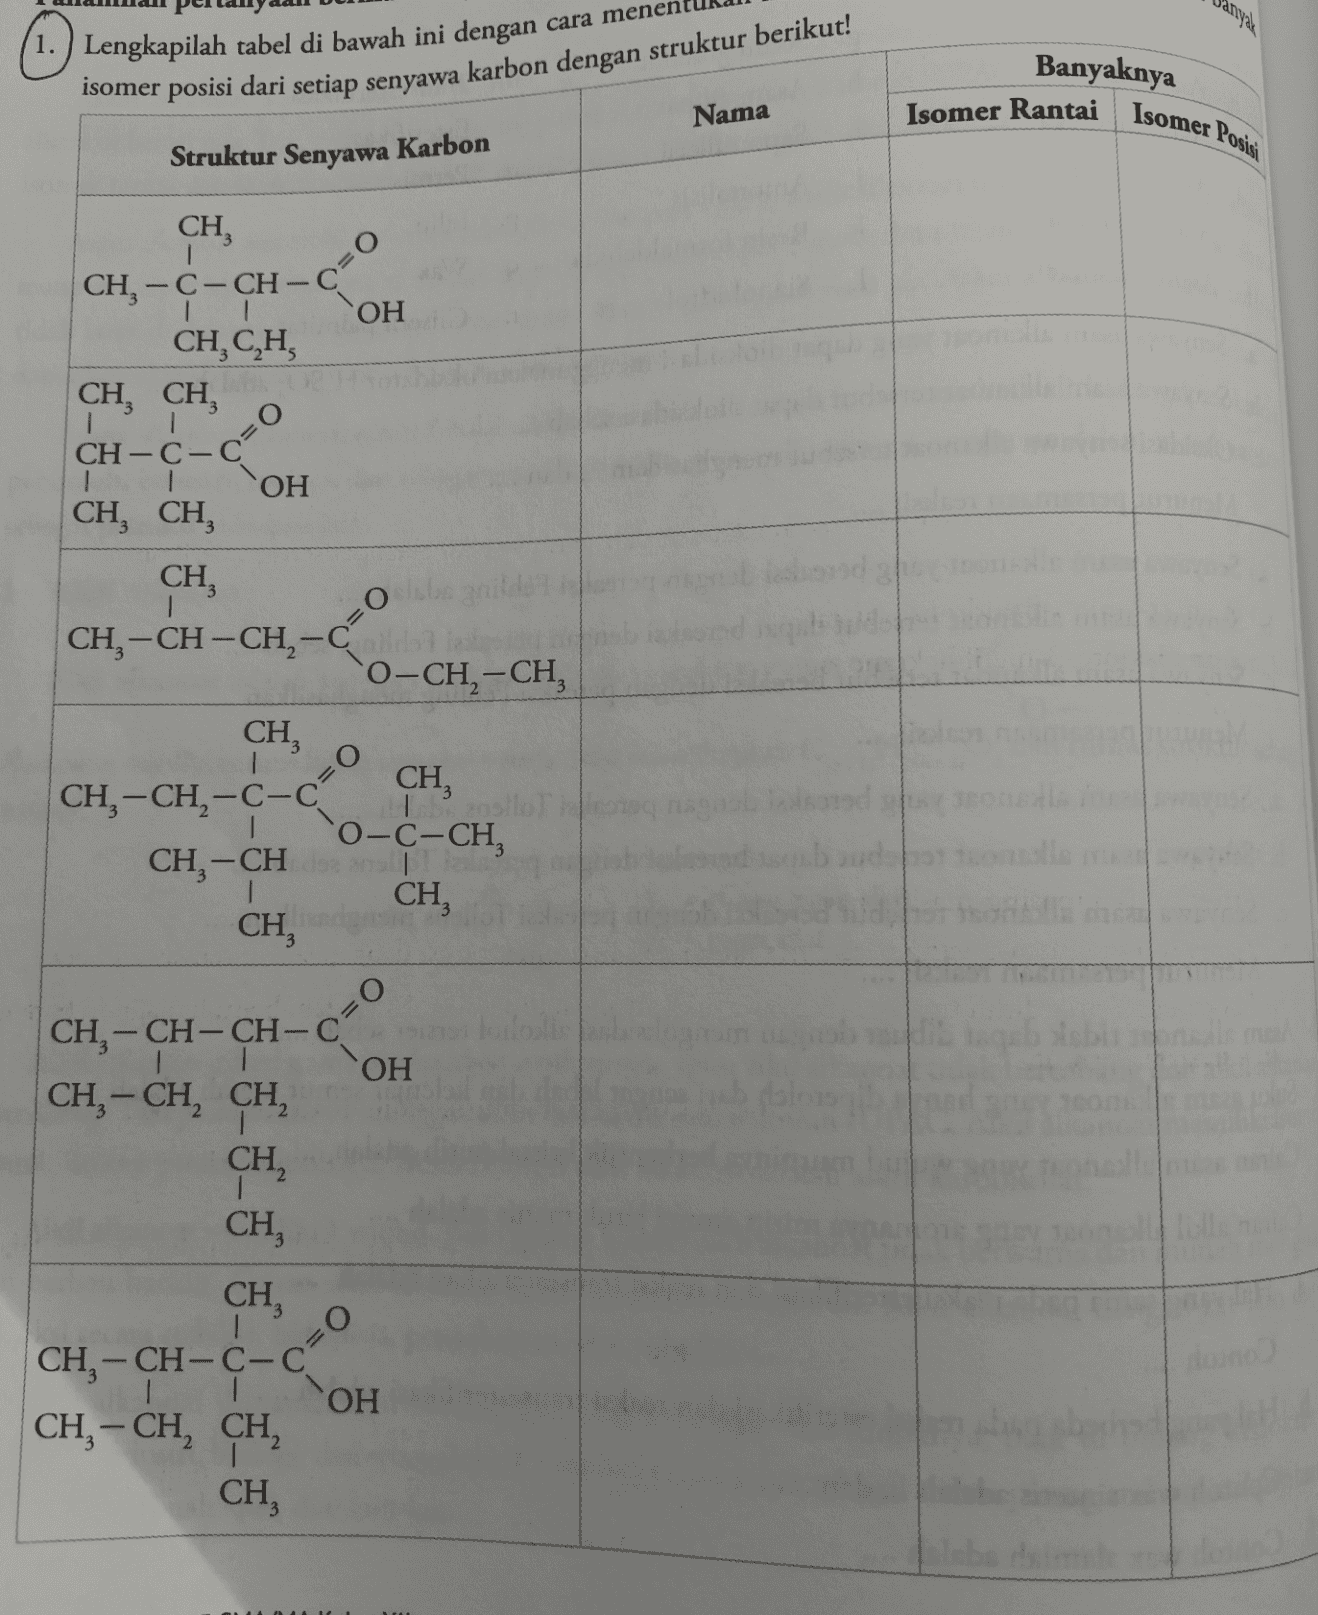 1. Lengkapilah tabel di bawah ini dengan cara menentukan
isomer posisi dari setiap senyawa karbon dengan struktur berikut!
banyak
Struktur Senyawa Karbon Nama Banyaknya
Isomer Rantai Isomer Posisi
CH₃
|
CH₃ – C – CH – C ═ O
| | \ OH
CH₃ C₂H₅
CH₃ CH₃
| | ═ O
CH – C – C
| | \ OH
CH₃ CH₃
CH₃
| ═ O
CH₃ – CH – CH₂ – C
\ O – CH₂ – CH₃
CH₃
| ═ O CH₃
CH₃ – CH₂ – C – C |
| \ O – C – CH₃
CH₃ – CH |
| CH₃
CH₃
═ O
CH₃ – CH – CH – C
| | \ OH
CH₃ – CH₂ CH₂
|
CH₂
|
CH₃
CH₃
| ═ O
CH₃ – CH – C – C
| | \ OH
CH₃ – CH₂ CH₂
|
CH₃